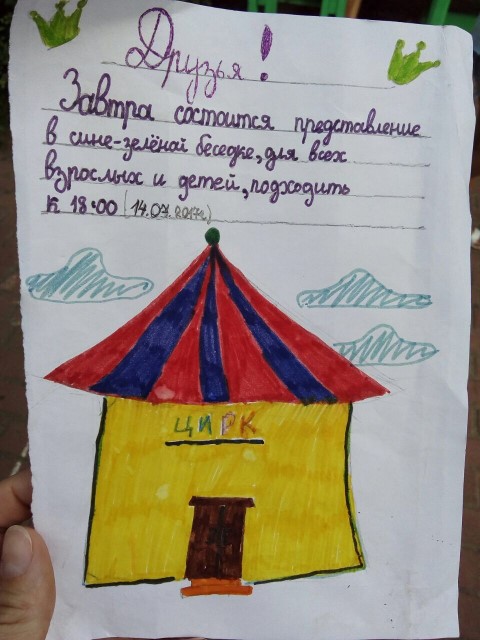 Друзья!
Завтра состоится представление
в сине-зелёной беседке, для всех
взрослых и детей, подходить
к 18:00 (14.07.2017г.)
ЦИРК